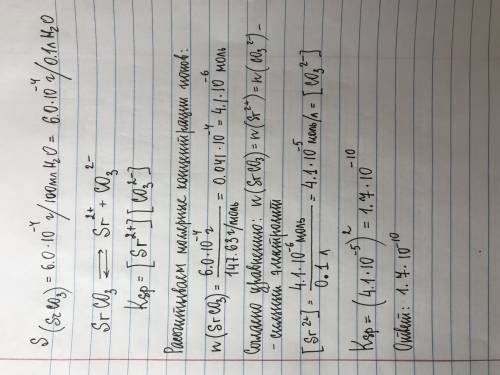 S (SrCO₃) = 6.0·10⁻⁴ г/100мл H₂O = 6.0·10⁻⁴ г/0.1л H₂O
SrCO₃ ⇌ Sr²⁺ + CO₃²⁻
Kпр = [Sr²⁺][CO₃²⁻]
Рассчитываем молярные концентрации ионов:
n(SrCO₃) = 6.0·10⁻⁴ г / 147.63 г/моль = 0.041·10⁻⁴ = 4.1·10⁻⁶ моль
Согласно уравнению: n(SrCO₃) = n(Sr²⁺) = n(CO₃²⁻) -
- сильный электролит
[Sr²⁺] = 4.1·10⁻⁶ моль / 0.1 л = 4.1·10⁻⁵ моль/л = [CO₃²⁻]
Kпр = (4.1·10⁻⁵)² = 1.7·10⁻¹⁰
Ответ: 1.7·10⁻¹⁰